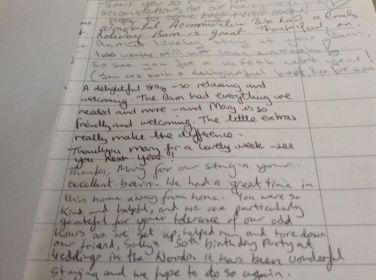 Thank you so
accommodation for
wonderful Accommodation. We had a lovely
Holiday Barn is great. Thank you
Another lovely stay at
two weeks will not
so see you for a week next year!
(You are such a delightful
A delightful stay - so relaxing and
welcoming. The Barn had everything we
needed and more - and Mary is so
friendly and welcoming. The little extras
really make the difference.
Thankyou mary for a lovely week - see
you next year!
Thanks, Mary for our stay in your
excellent barn. We had a great time in
this home away from home. You were so
kind and helpful, and we are particularly
grateful for your tolerance of our odd
hours as we set up, helped run and tore down
our friend, Solly's 50th birthday party at
Weddings in the Woods. It has been wonderful
staying and we hope to do so again.